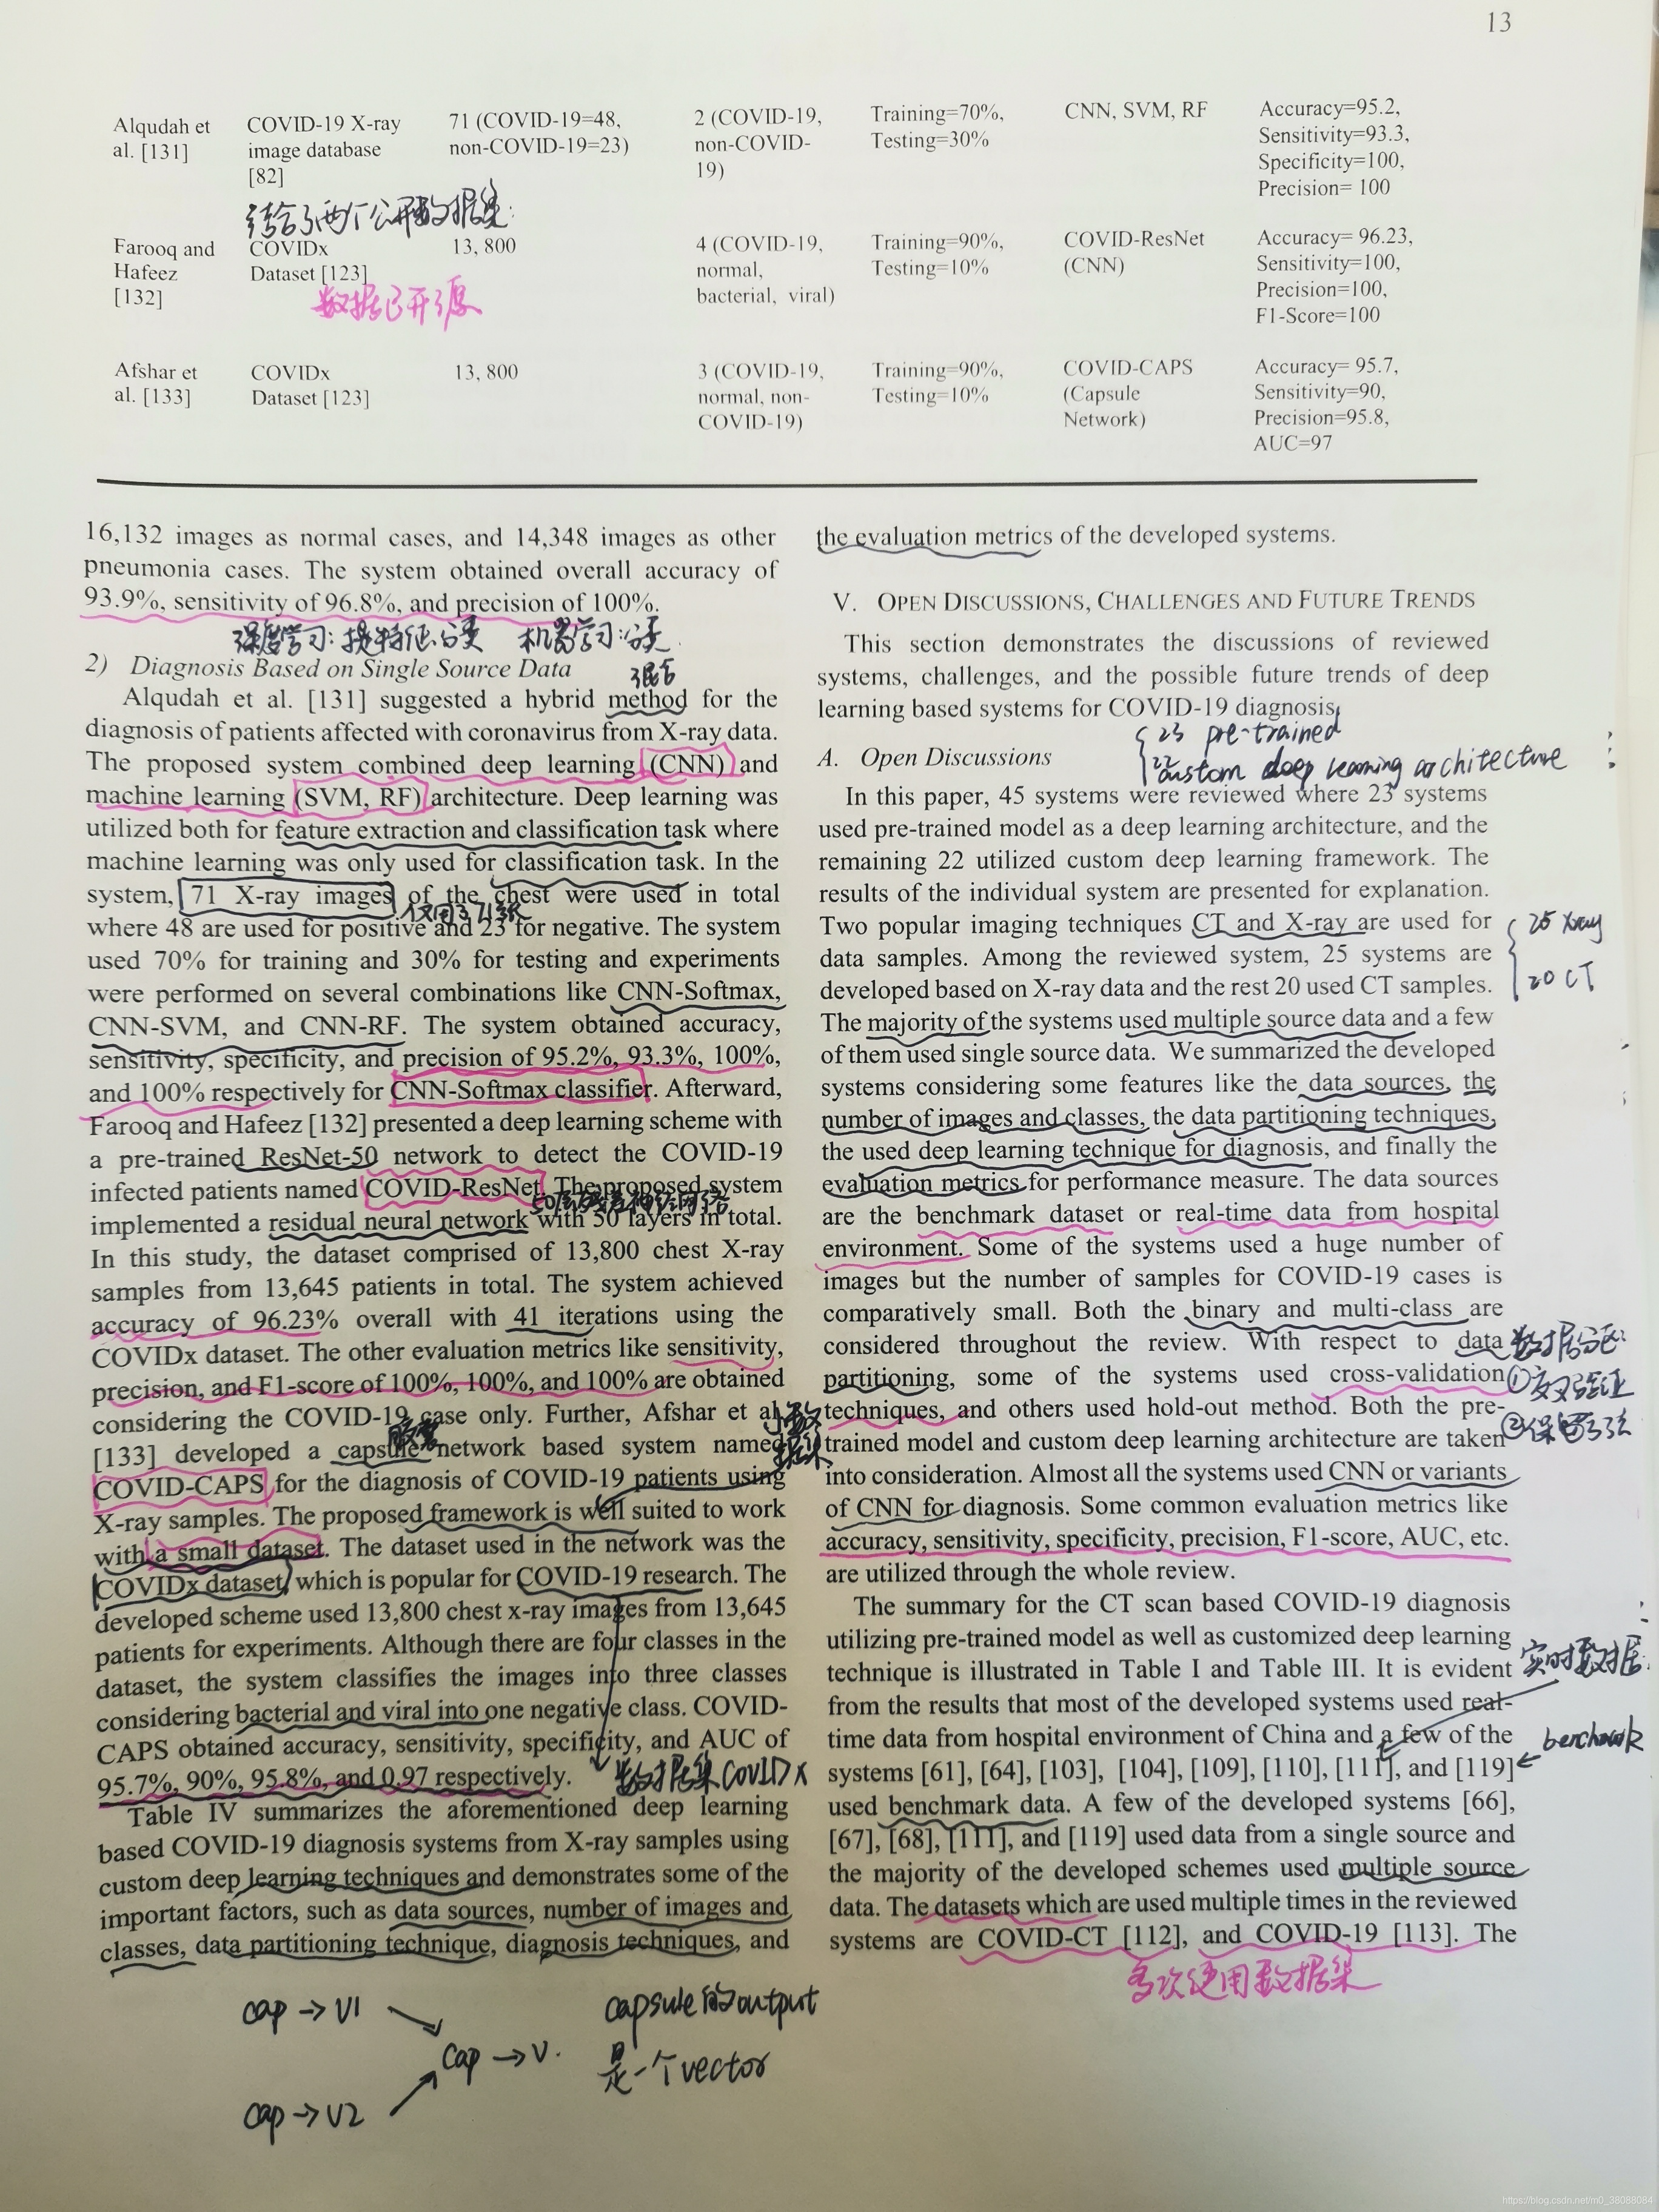 13
Alqudah et
al. [131]
COVID-19 X-ray
image database
[82]
71 (COVID-19=48,
non-COVID-19=23)
2 (COVID-19,
non-COVID-
19)
Training=70%,
Testing=30%
CNN, SVM, RF
Accuracy=95.2,
Sensitivity=93.3,
Specificity=100,
Precision= 100
结合了两个公开数据集.
Farooq and
Hafeez
[132]
COVIDx
Dataset [123]
数据已开源
13, 800
4 (COVID-19,
normal,
bacterial, viral)
Training=90%,
Testing=10%
COVID-ResNet
(CNN)
Accuracy= 96.23,
Sensitivity=100,
Precision=100,
F1-Score=100
Afshar et
al. [133]
COVIDx
Dataset [123]
13, 800
3 (COVID-19,
normal, non-
COVID-19)
Training=90%,
Testing=10%
COVID-CAPS
(Capsule
Network)
Accuracy= 95.7,
Sensitivity=90,
Precision=95.8,
AUC=97
16,132 images as normal cases, and 14,348 images as other
pneumonia cases. The system obtained overall accuracy of
93.9%, sensitivity of 96.8%, and precision of 100%.
深度学习:提特征.分类 机器学习:分类.
2) Diagnosis Based on Single Source Data
混合
Alqudah et al. [131] suggested a hybrid method for the
diagnosis of patients affected with coronavirus from X-ray data.
The proposed system combined deep learning (CNN) and
machine learning (SVM, RF) architecture. Deep learning was
utilized both for feature extraction and classification task where
machine learning was only used for classification task. In the
system, 71 X-ray images of the chest were used in total
仅用了71张
where 48 are used for positive and 23 for negative. The system
used 70% for training and 30% for testing and experiments
were performed on several combinations like CNN-Softmax,
CNN-SVM, and CNN-RF. The system obtained accuracy,
sensitivity, specificity, and precision of 95.2%, 93.3%, 100%,
and 100% respectively for CNN-Softmax classifier. Afterward,
Farooq and Hafeez [132] presented a deep learning scheme with
a pre-trained ResNet-50 network to detect the COVID-19
infected patients named COVID-ResNet. The proposed system
implemented a residual neural network with 50 layers in total.
In this study, the dataset comprised of 13,800 chest X-ray
samples from 13,645 patients in total. The system achieved
accuracy of 96.23% overall with 41 iterations using the
COVIDx dataset. The other evaluation metrics like sensitivity,
precision, and F1-score of 100%, 100%, and 100% are obtained
considering the COVID-19 case only. Further, Afshar et al.
胶囊
[133] developed a capsule network based system named
COVID-CAPS for the diagnosis of COVID-19 patients using
X-ray samples. The proposed framework is well suited to work
with a small dataset. The dataset used in the network was the
COVIDx dataset, which is popular for COVID-19 research. The
developed scheme used 13,800 chest x-ray images from 13,645
patients for experiments. Although there are four classes in the
dataset, the system classifies the images into three classes
considering bacterial and viral into one negative class. COVID-
CAPS obtained accuracy, sensitivity, specificity, and AUC of
95.7%, 90%, 95.8%, and 0.97 respectively.
数据集COVIDx
Table IV summarizes the aforementioned deep learning
based COVID-19 diagnosis systems from X-ray samples using
custom deep learning techniques and demonstrates some of the
important factors, such as data sources, number of images and
classes, data partitioning technique, diagnosis techniques, and
the evaluation metrics of the developed systems.
V. OPEN DISCUSSIONS, CHALLENGES AND FUTURE TRENDS
This section demonstrates the discussions of reviewed
systems, challenges, and the possible future trends of deep
learning based systems for COVID-19 diagnosis.
23 pre-trained
22 custom deep learning architecture
A. Open Discussions
In this paper, 45 systems were reviewed where 23 systems
used pre-trained model as a deep learning architecture, and the
remaining 22 utilized custom deep learning framework. The
results of the individual system are presented for explanation.
Two popular imaging techniques CT and X-ray are used for
data samples. Among the reviewed system, 25 systems are
developed based on X-ray data and the rest 20 used CT samples.
25 Xray
20 CT
The majority of the systems used multiple source data and a few
of them used single source data. We summarized the developed
systems considering some features like the data sources, the
number of images and classes, the data partitioning techniques,
the used deep learning technique for diagnosis, and finally the
evaluation metrics for performance measure. The data sources
are the benchmark dataset or real-time data from hospital
environment. Some of the systems used a huge number of
images but the number of samples for COVID-19 cases is
comparatively small. Both the binary and multi-class are
considered throughout the review. With respect to data
partitioning, some of the systems used cross-validation
①交叉验证
techniques, and others used hold-out method. Both the pre-
trained model and custom deep learning architecture are taken
into consideration. Almost all the systems used CNN or variants
of CNN for diagnosis. Some common evaluation metrics like
accuracy, sensitivity, specificity, precision, F1-score, AUC, etc.
are utilized through the whole review.
The summary for the CT scan based COVID-19 diagnosis
utilizing pre-trained model as well as customized deep learning
technique is illustrated in Table I and Table III. It is evident
实时数据
from the results that most of the developed systems used real-
time data from hospital environment of China and a few of the
systems [61], [64], [103], [104], [109], [110], [111], and [119]
used benchmark data. A few of the developed systems [66],
[67], [68], [111], and [119] used data from a single source and
the majority of the developed schemes used multiple source
data. The datasets which are used multiple times in the reviewed
systems are COVID-CT [112], and COVID-19 [113]. The
多次使用数据集
cap → V1
cap → V.
cap → V2
capsule的output
是一个vector
https://blog.csdn.net/m0_38088084